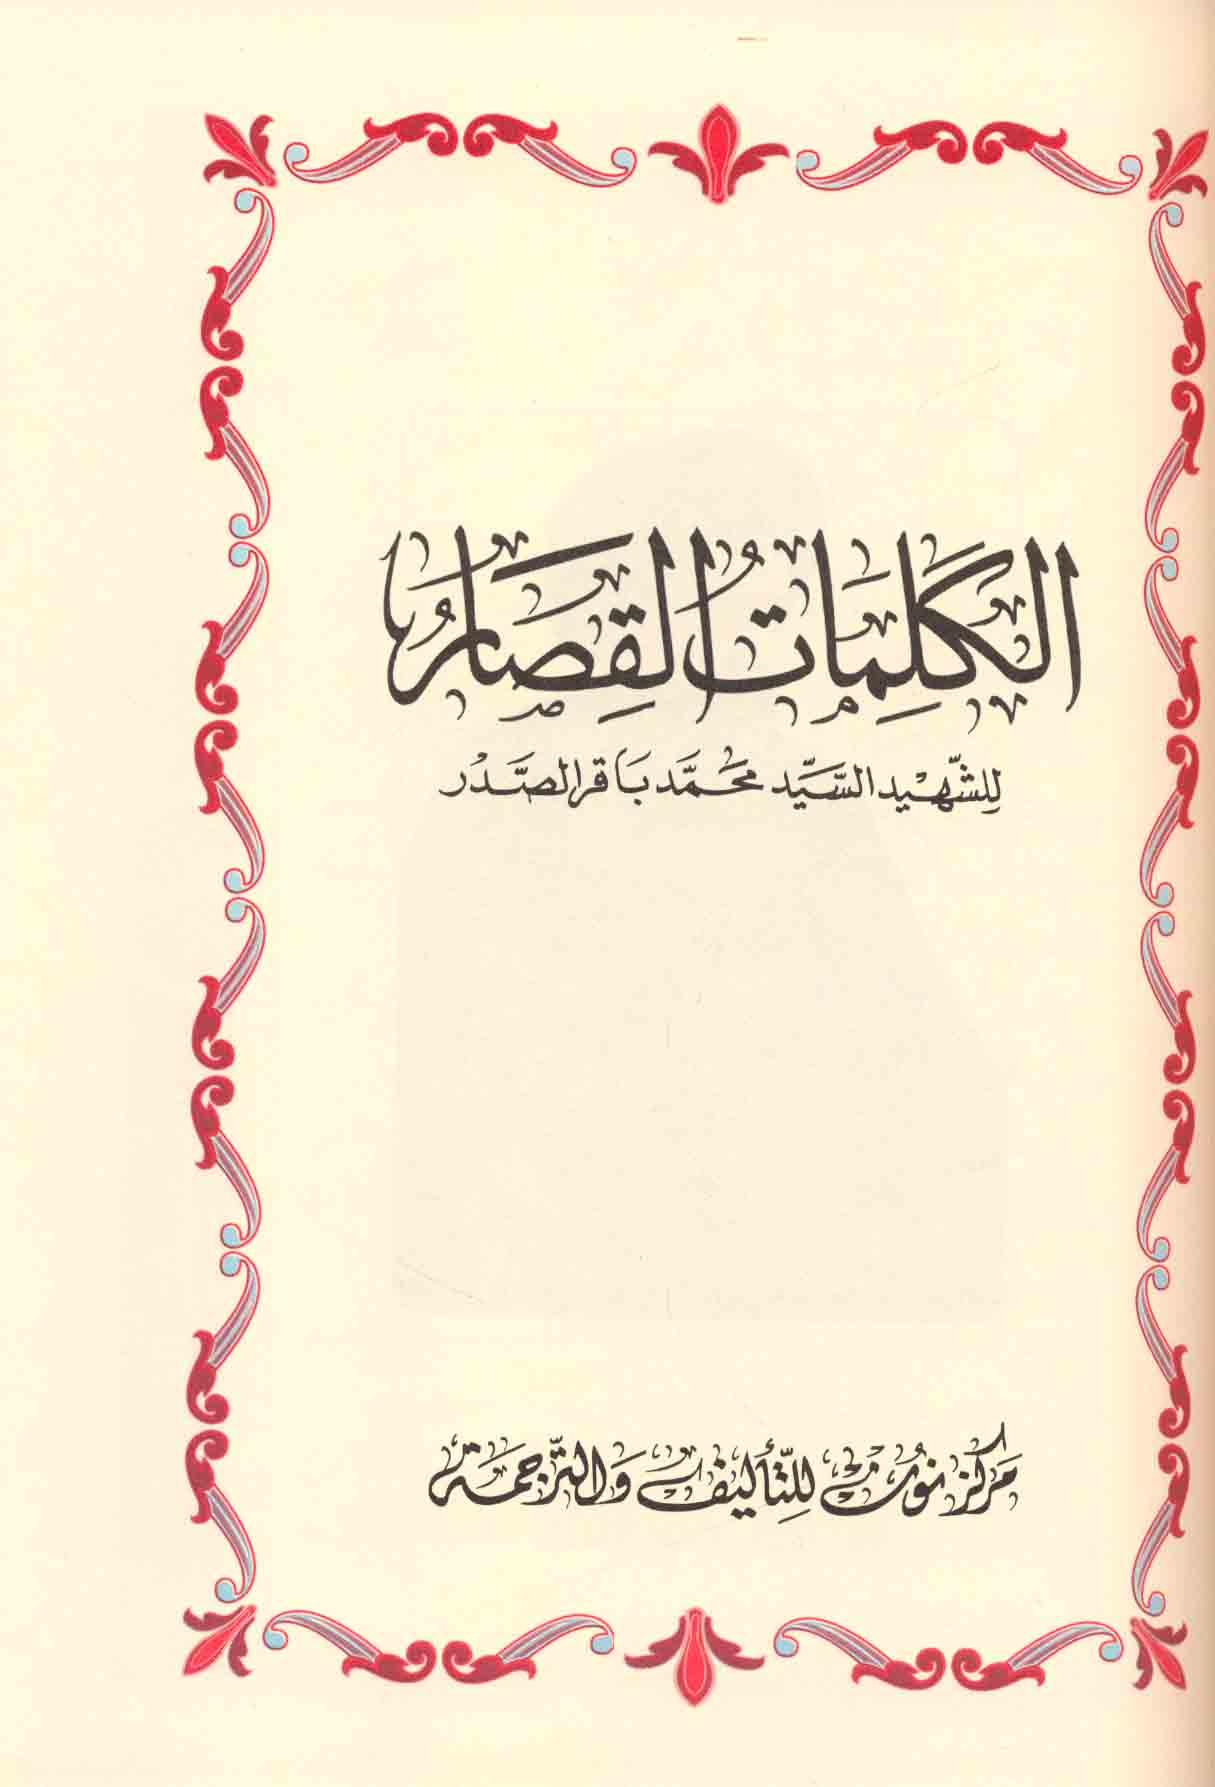 الكَلِمَاتُ القِصَارُ
لِلشَّهِيْد السَّيِّد مُحَمَّد بَاقر الصَّدْر
مَركز نوُن للِتَّأليف وَالتَّرجمَة